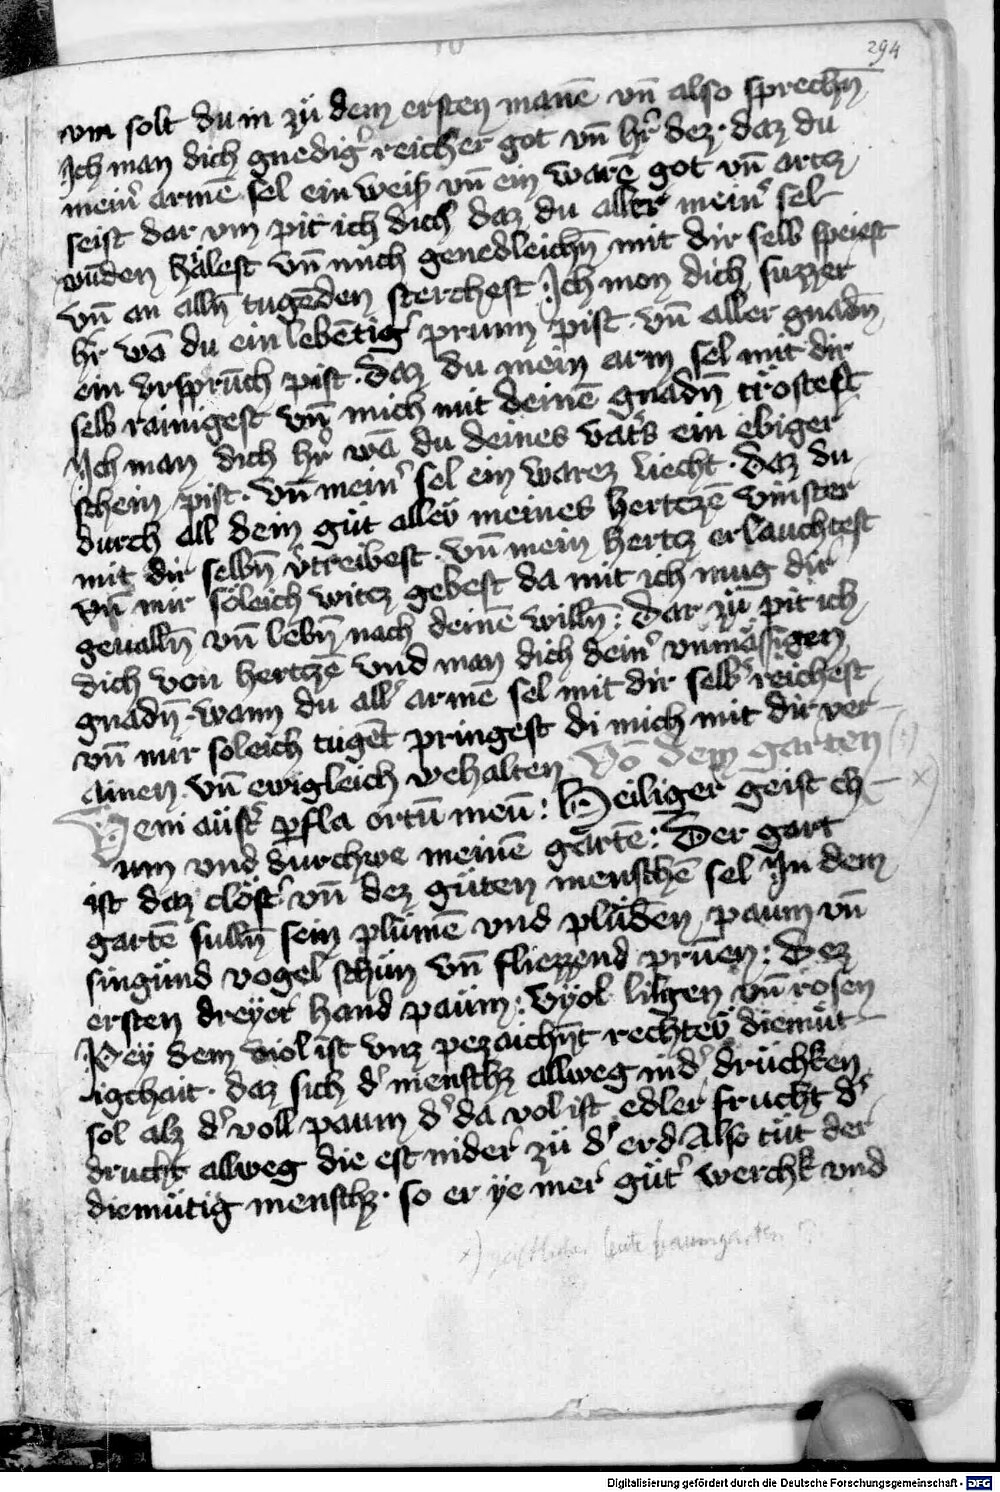 294
vm solt du in zü dem ersten manē vn̄ also sprechn̄
Ich man dich gnedig᷑ reicher got vn̄ hr᷑ dez · daz du
mein᷑ armē sel ein weiß vn̄ ein warē got vn̄ artz
seist dar vm pit ich dich daz du aller mein᷑ sel
wūden hälest vn̄ mich genedleichn̄ mit dir selb speiest
vn̄ an alln̄ tugēden sterchest Ich mon dich suzzer
hr᷑ wā du ein lebētig᷑ prunn pist · vn̄ aller gnadn̄
ein vrsprūch pist · daz du mein arm sel mit dir
selb rainigest vn̄ mich mit deinē gnadn̄ tröstest
Ich man dich hr᷑ wā du deines vat᷑s ein ebiger
schein pist · vn̄ mein᷑ sel ein warez liecht · daz du
durch all dein güt alleü meines hertzē vinster
mit dir selbn̄ v᷑treibest · vn̄ mein hertz erlauchtest
vn̄ mir söleich witz gebest da mit ich mug dir
geualln̄ vn̄ lebn̄ nach deinē willn̄ : dar zü pit ich
dich von hertzē vnd man dich dein᷑ vnmäsigen
gnadn̄ · wann du all᷑ armē sel mit dir selb᷑ reichest
vn̄ mir soleich tugēt pringest di mich mit dir ver-
ainen vn̄ ewigleich wehalten Vō dem garten
Veni aüst᷑ ꝑfla ortū meū : Heiliger geist ch-
um vnd durchwe meinē gartē : Der gart
ist daz clöst᷑ vn̄ dez güten menschē sel In dem
gartē sulln̄ sein plümē vnd plüden paum vn̄
singünd vogel schün vn̄ fliezzend prūen : Dez
ersten dreyer hand paüm : vÿol lilgen vn̄ rosen
Pey dem viol ist vnz pezaichn̄t rechteü diemüt-
igchait · daz sich d᷑ menschz allweg nid᷑ drüchken
sol alz d᷑ voll paum d᷑ da vol ist edler frucht d᷑
drucht allweg die est nider zü d᷑ erd Also tüt der
diemütig menschz · so er ye mer güt᷑ werchk vnd
Digitalisierung gefördert durch die Deutsche Forschungsgemeinschaft - DFG